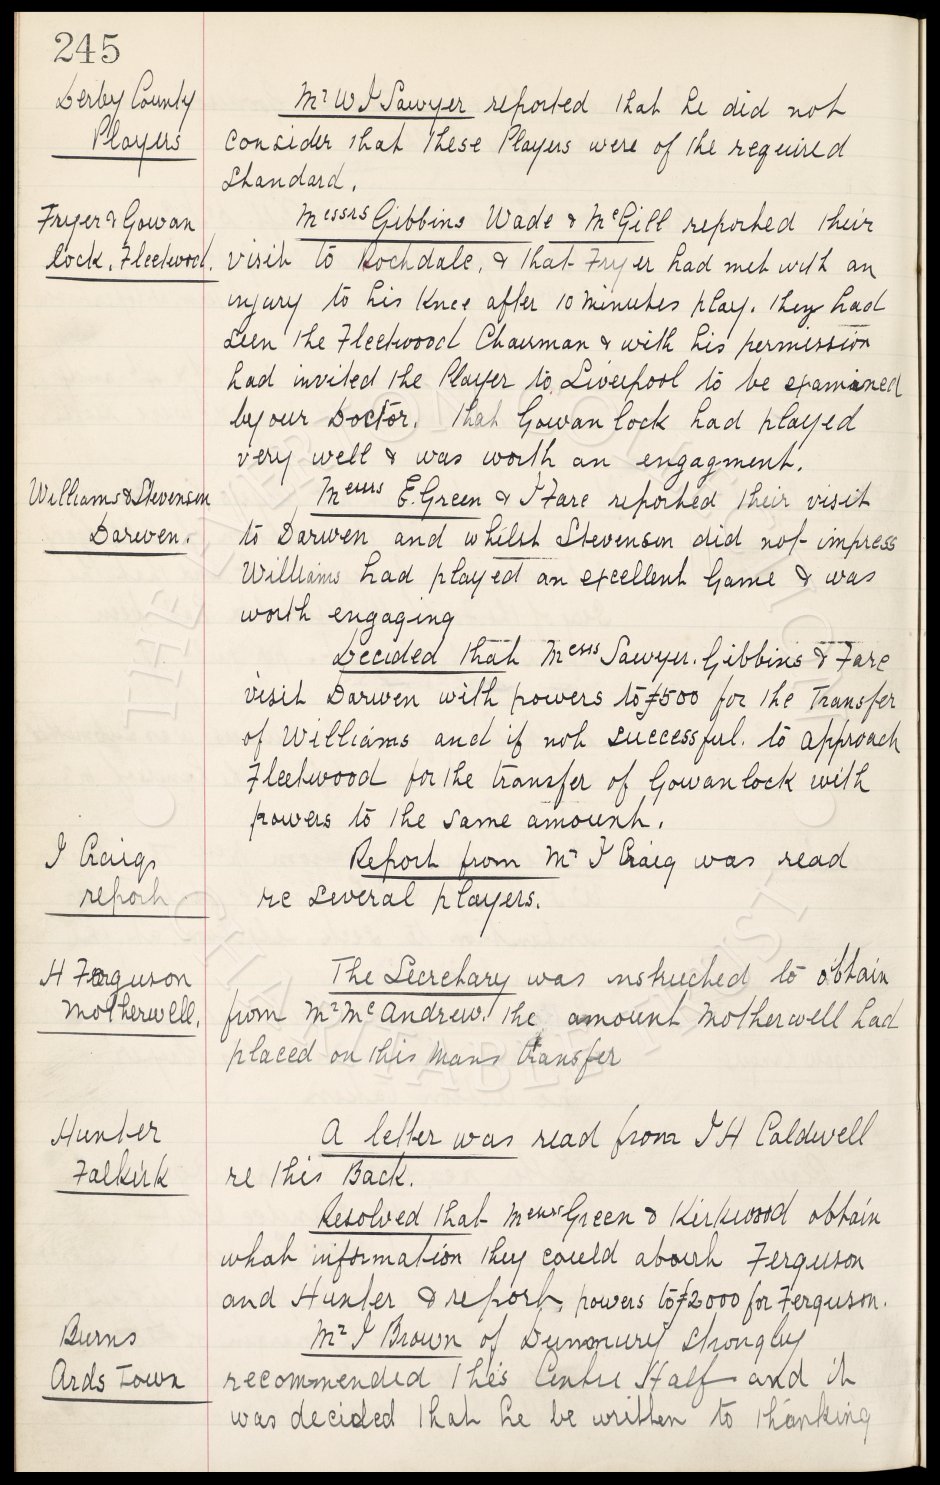 245
Derby County
Players
Mr W J Sawyer reported that he did not
consider that these Players were of the required
Standard.
Fryer & Gowan
lock. Fleetwood.
Messrs Gibbins Wade & McGill reported their
visit to Rochdale, & that Fryer had met with an
injury to his Knee after 10 minutes play. They had
seen the Fleetwood Chairman & with his permission
had invited the Player to Liverpool to be examined
by our Doctor. That Gowan lock had played
very well & was worth an engagment.
Williams & Stevenson
Darwen.
Messrs E. Green & J Fare reported their visit
to Darwen and whilst Stevenson did not impress
Williams had played an excellent Game & was
worth engaging
Decided that Messrs Sawyer. Gibbins & Fare
visit Darwen with powers to £500 for the Transfer
of Williams and if not successful. to approach
Fleetwood for the transfer of Gowan lock with
powers to the same amount.
J Craigs
report
Report from Mr J Craig was read
re several players.
H Ferguson
Motherwell.
The Secretary was instructed to obtain
from Mr McAndrew. the amount Motherwell had
placed on this mans transfer
Hunter
Falkirk
A letter was read from J H Caldwell
re this Back.
Resolved that Messrs Green & Kirkwood obtain
what information they could about Ferguson
and Hunter & report, powers to £2000 for Ferguson.
Burns
Ards Town
Mr J Brown of Dunmurry strongly
recommended this Centre Half and it
was decided that he be written to thanking
THE EVERTON COLLECTION
CHARITABLE TRUST